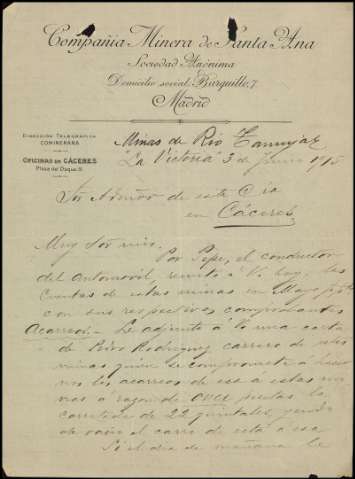 Compañía Minera de Santa Ana
Sociedad Anónima
Domicilio social, Barquillo, 7
Madrid
DIRECCIÓN TELEGRÁFICA
COMINERANA
OFICINAS EN CÁCERES
Plaza del Duque, 9
Minas de Rio Tamujar
"La Victoria" 3 de Junio 1915
Sor Admor de esta Cia
en Cáceres
Muy Sor mio:
Por Pepe, el conductor
del Automovil, remito á Vd. hoy las
Cuentas de estas minas en Mayo ppdo
con sus respectivos comprobantes
Acarreos.- Le adjunto á la una carta
de Pedro Rodriguez carrero de estas
minas quien se compromete á hacer
nos los acarreos de esa á estas mi
nas á razon de once pesetas la
carretada de 22 quintales, yendo
de vacio el carro de esta á esa
Si el dia de mañana le